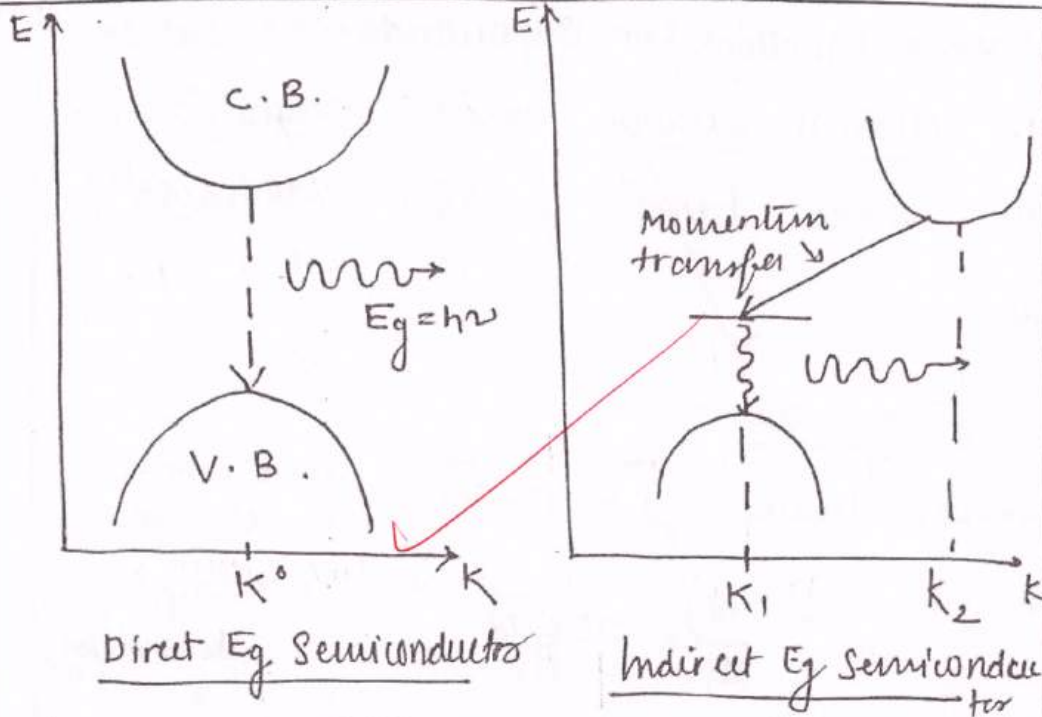 E
C. B.
Eg = hν
V. B.
K°
K
Direct Eg Semiconductor
E
Momentum
transfer
K1
k2
K
Indirect Eg Semiconduc
tor